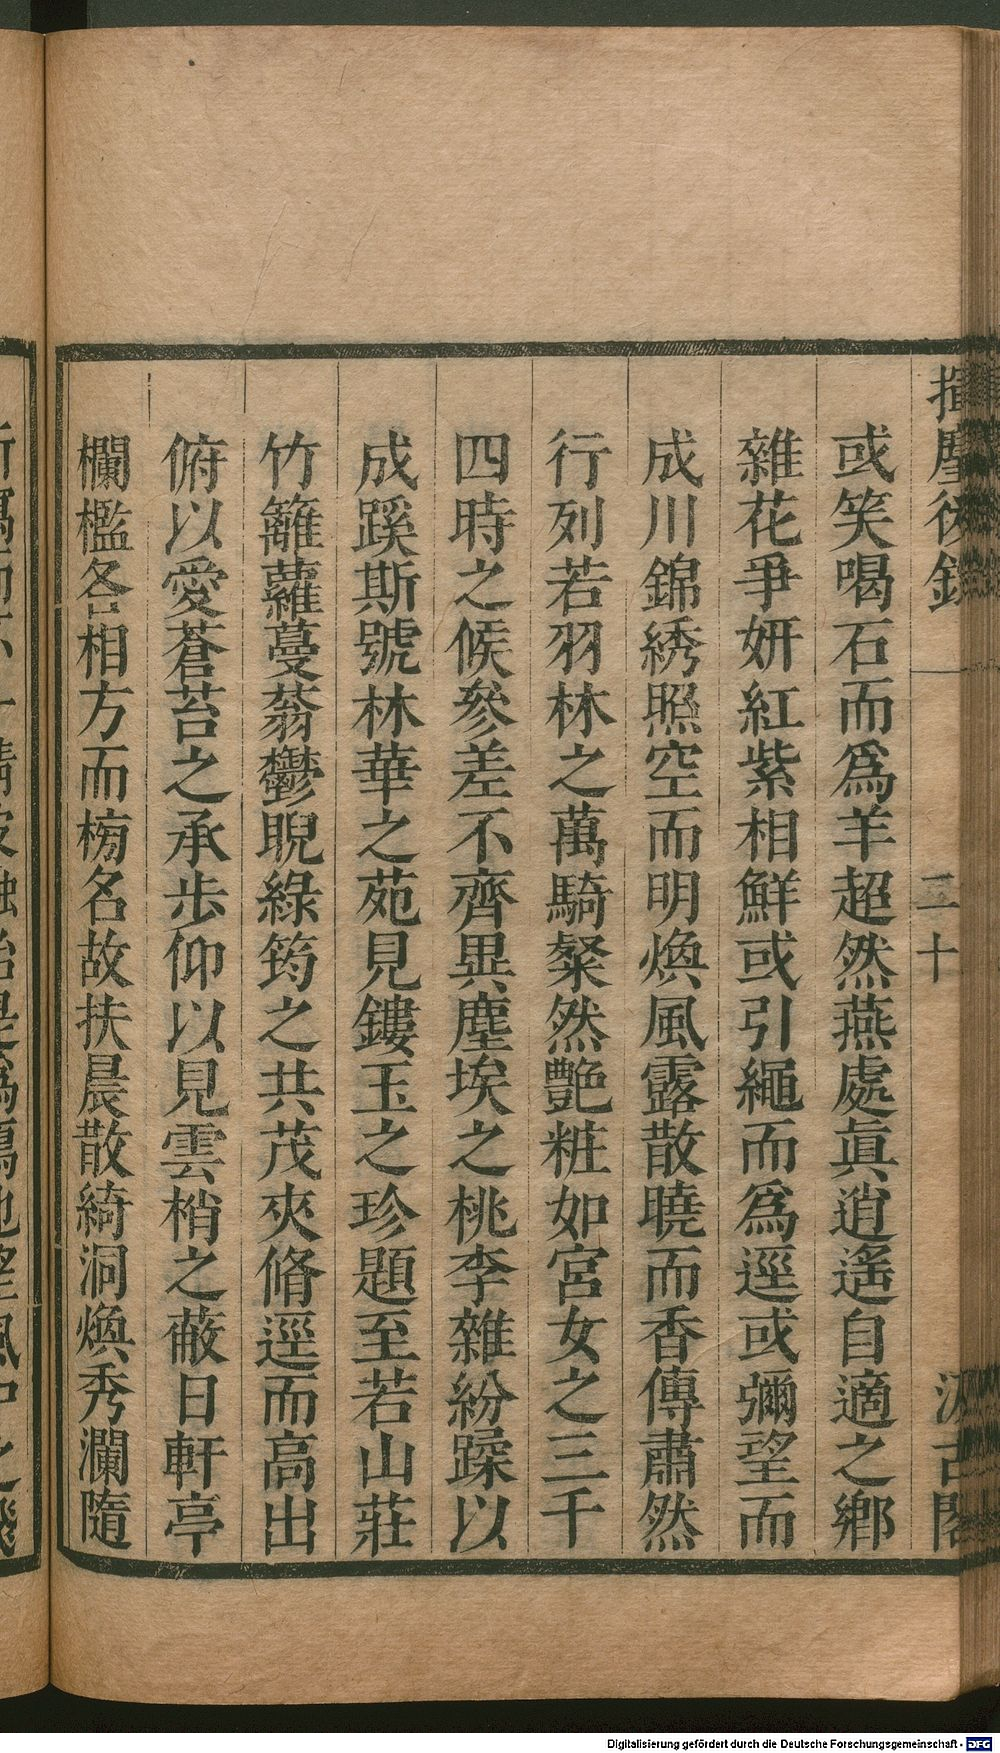 揮麈後錄
二十
汲古閣
或笑喝石而爲羊超然燕處眞逍遙自適之鄉
雜花爭妍紅紫相鮮或引繩而爲逕或彌望而
成川錦綉照空而明煥風露散曉而香傳肅然
行列若羽林之萬騎粲然艷粧如宮女之三千
四時之候參差不齊異塵埃之桃李雜紛蹂以
成蹊斯號林華之苑見鏤玉之珍題至若山莊
竹籬蘿蔓蓊鬱睨綠筠之共茂夾脩逕而高出
俯以愛蒼苔之承步仰以見雲梢之蔽日軒亭
欄檻各相方而榜名故扶晨散綺洞煥秀瀾隨
Digitalisierung gefördert durch die Deutsche Forschungsgemeinschaft - DFG